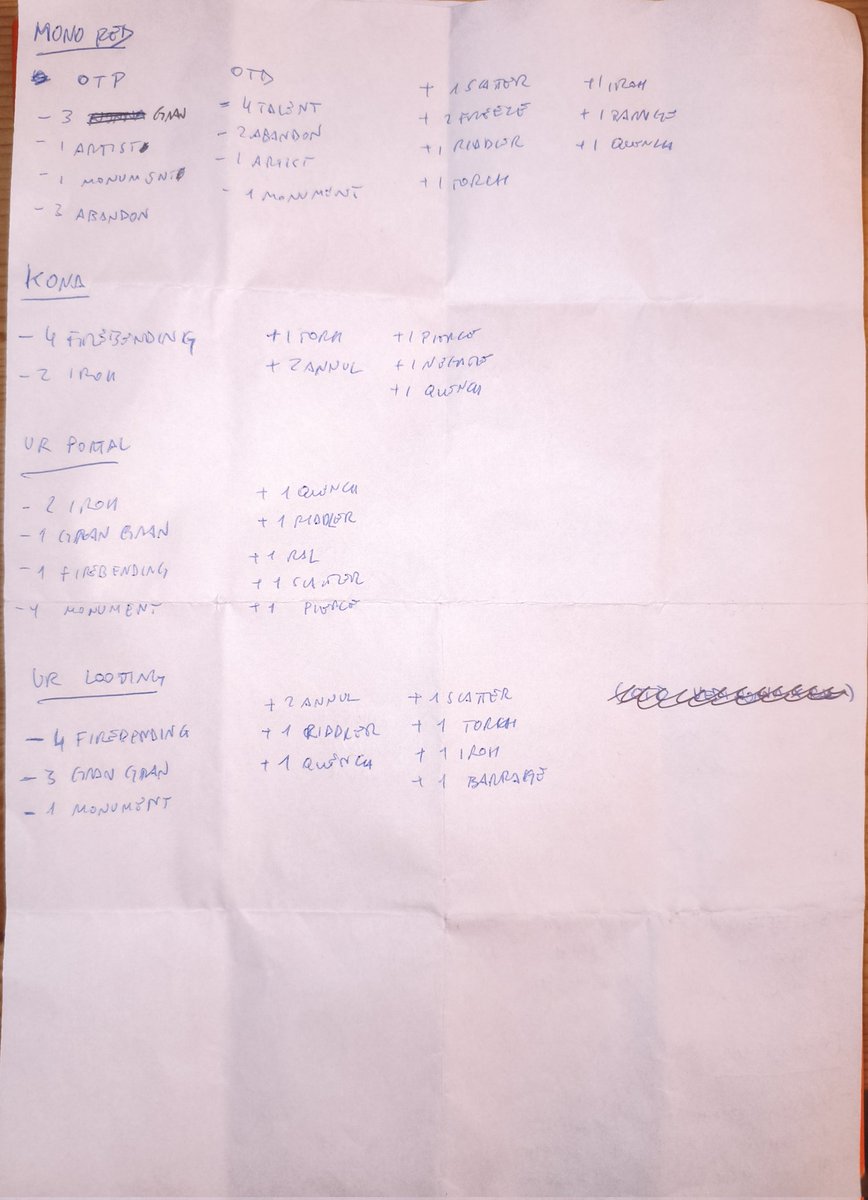 MONO RED
OTP
- 3 GRAN
- 1 ARTIST
- 1 MONUMENT
- 3 ABANDON
OTD
- 4 TALENT
- 2 ABANDON
- 1 ARTIST
- 1 MONUMENT
+ 1 SCATTER
+ 2 FREEZE
+ 1 RIDDLER
+ 1 TORCH
+ 1 IROH
+ 1 BARRAGE
+ 1 QUENCH
KONA
- 4 FIREBENDING
- 2 IROH
+ 1 TORCH
+ 2 ANNUL
+ 1 PIERCE
+ 1 NEGATE
+ 1 QUENCH
UR PORTAL
- 2 IROH
- 1 GRAN GRAN
- 1 FIREBENDING
- 1 MONUMENT
+ 1 QUENCH
+ 1 RIDDLER
+ 1 RAL
+ 1 SCATTER
+ 1 PIERCE
UR LOOTING
- 4 FIREBENDING
- 3 GRAN GRAN
- 1 MONUMENT
+ 2 ANNUL
+ 1 RIDDLER
+ 1 QUENCH
+ 1 SCATTER
+ 1 TORCH
+ 1 IROH
+ 1 BARRAGE